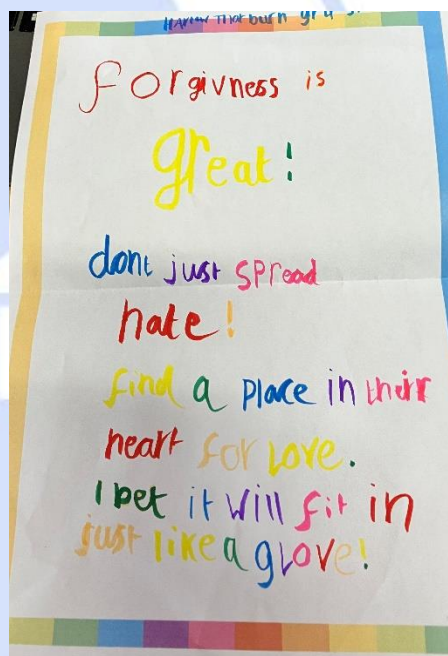 forgivness is
great!
dont just spread
hate!
find a place in their
heart for love.
I bet it will fit in
just like a glove!